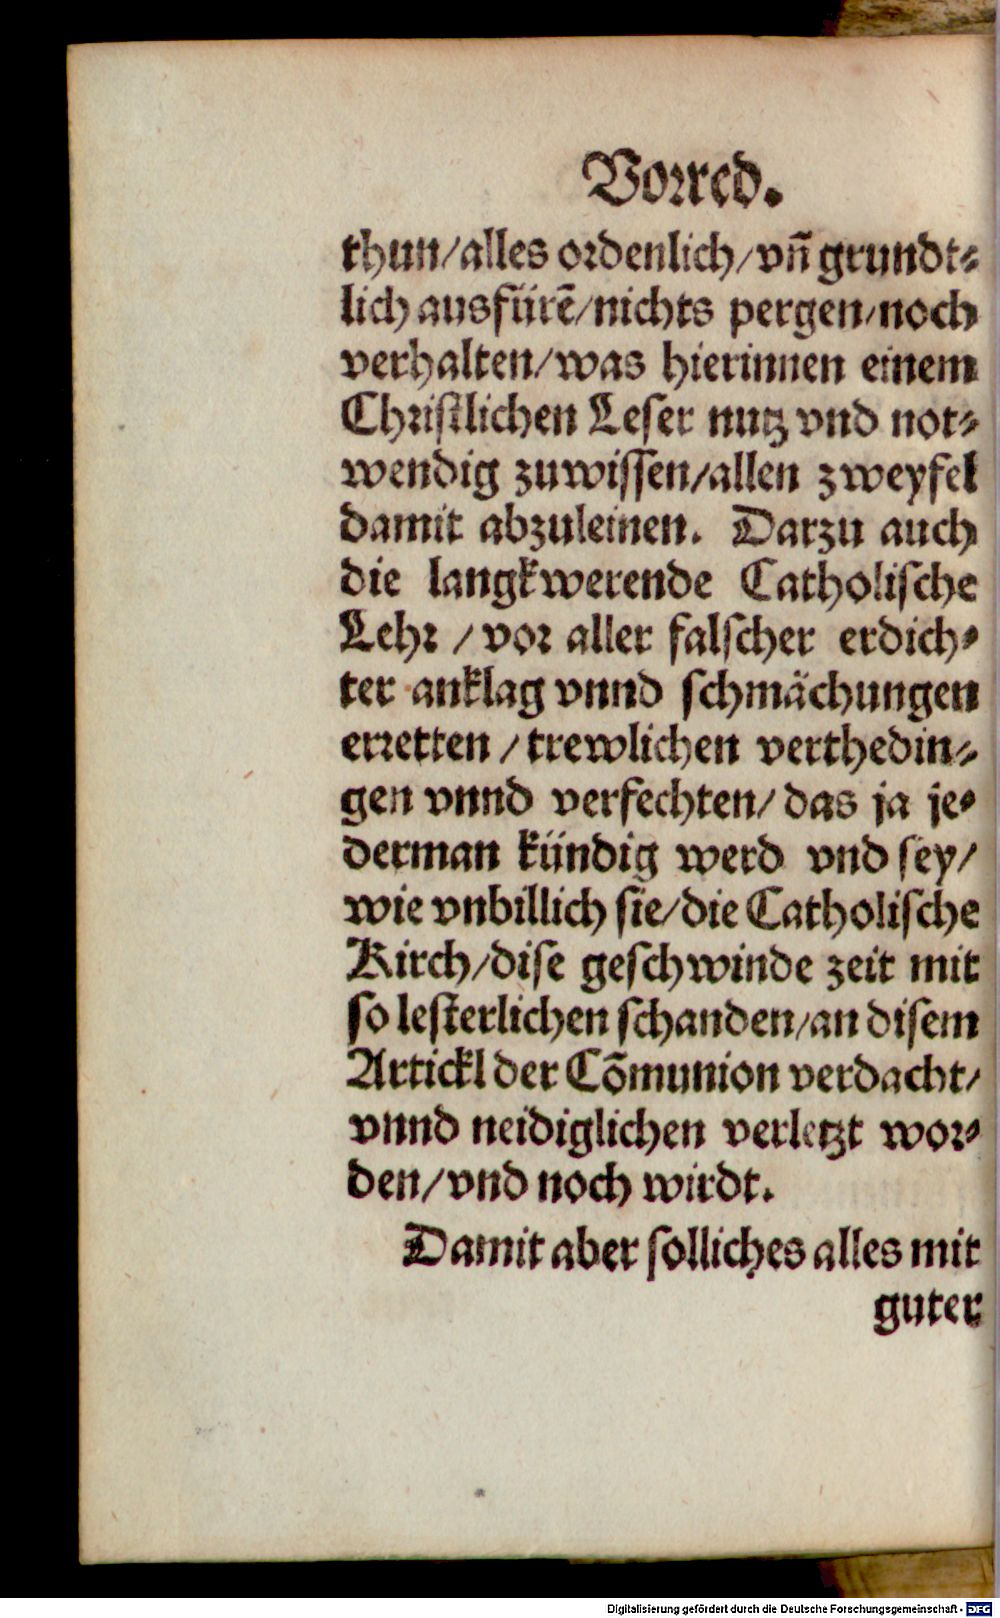 Vorred.
thun/alles ordenlich/vn̄ grundt⸗
lich ausfürē/nichts pergen/noch
verhalten/was hierinnen einem
Christlichen Leser nutz vnd not⸗
wendig zuwissen/allen zweyfel
damit abzuleinen. Darzu auch
die langkwerende Catholische
Lehr / vor aller falscher erdich⸗
ter anklag vnnd schmächungen
erretten / trewlichen verthedin⸗
gen vnnd verfechten/ das ja je⸗
derman kündig werd vnd sey/
wie vnbillich sie/die Catholische
Kirch/dise geschwinde zeit mit
so lesterlichen schanden/an disem
Artickl der Cōmunion verdacht/
vnnd neidiglichen verletzt wor⸗
den/vnd noch wirdt.
Damit aber solliches alles mit
guter
Digitalisierung gefördert durch die Deutsche Forschungsgemeinschaft - DFG